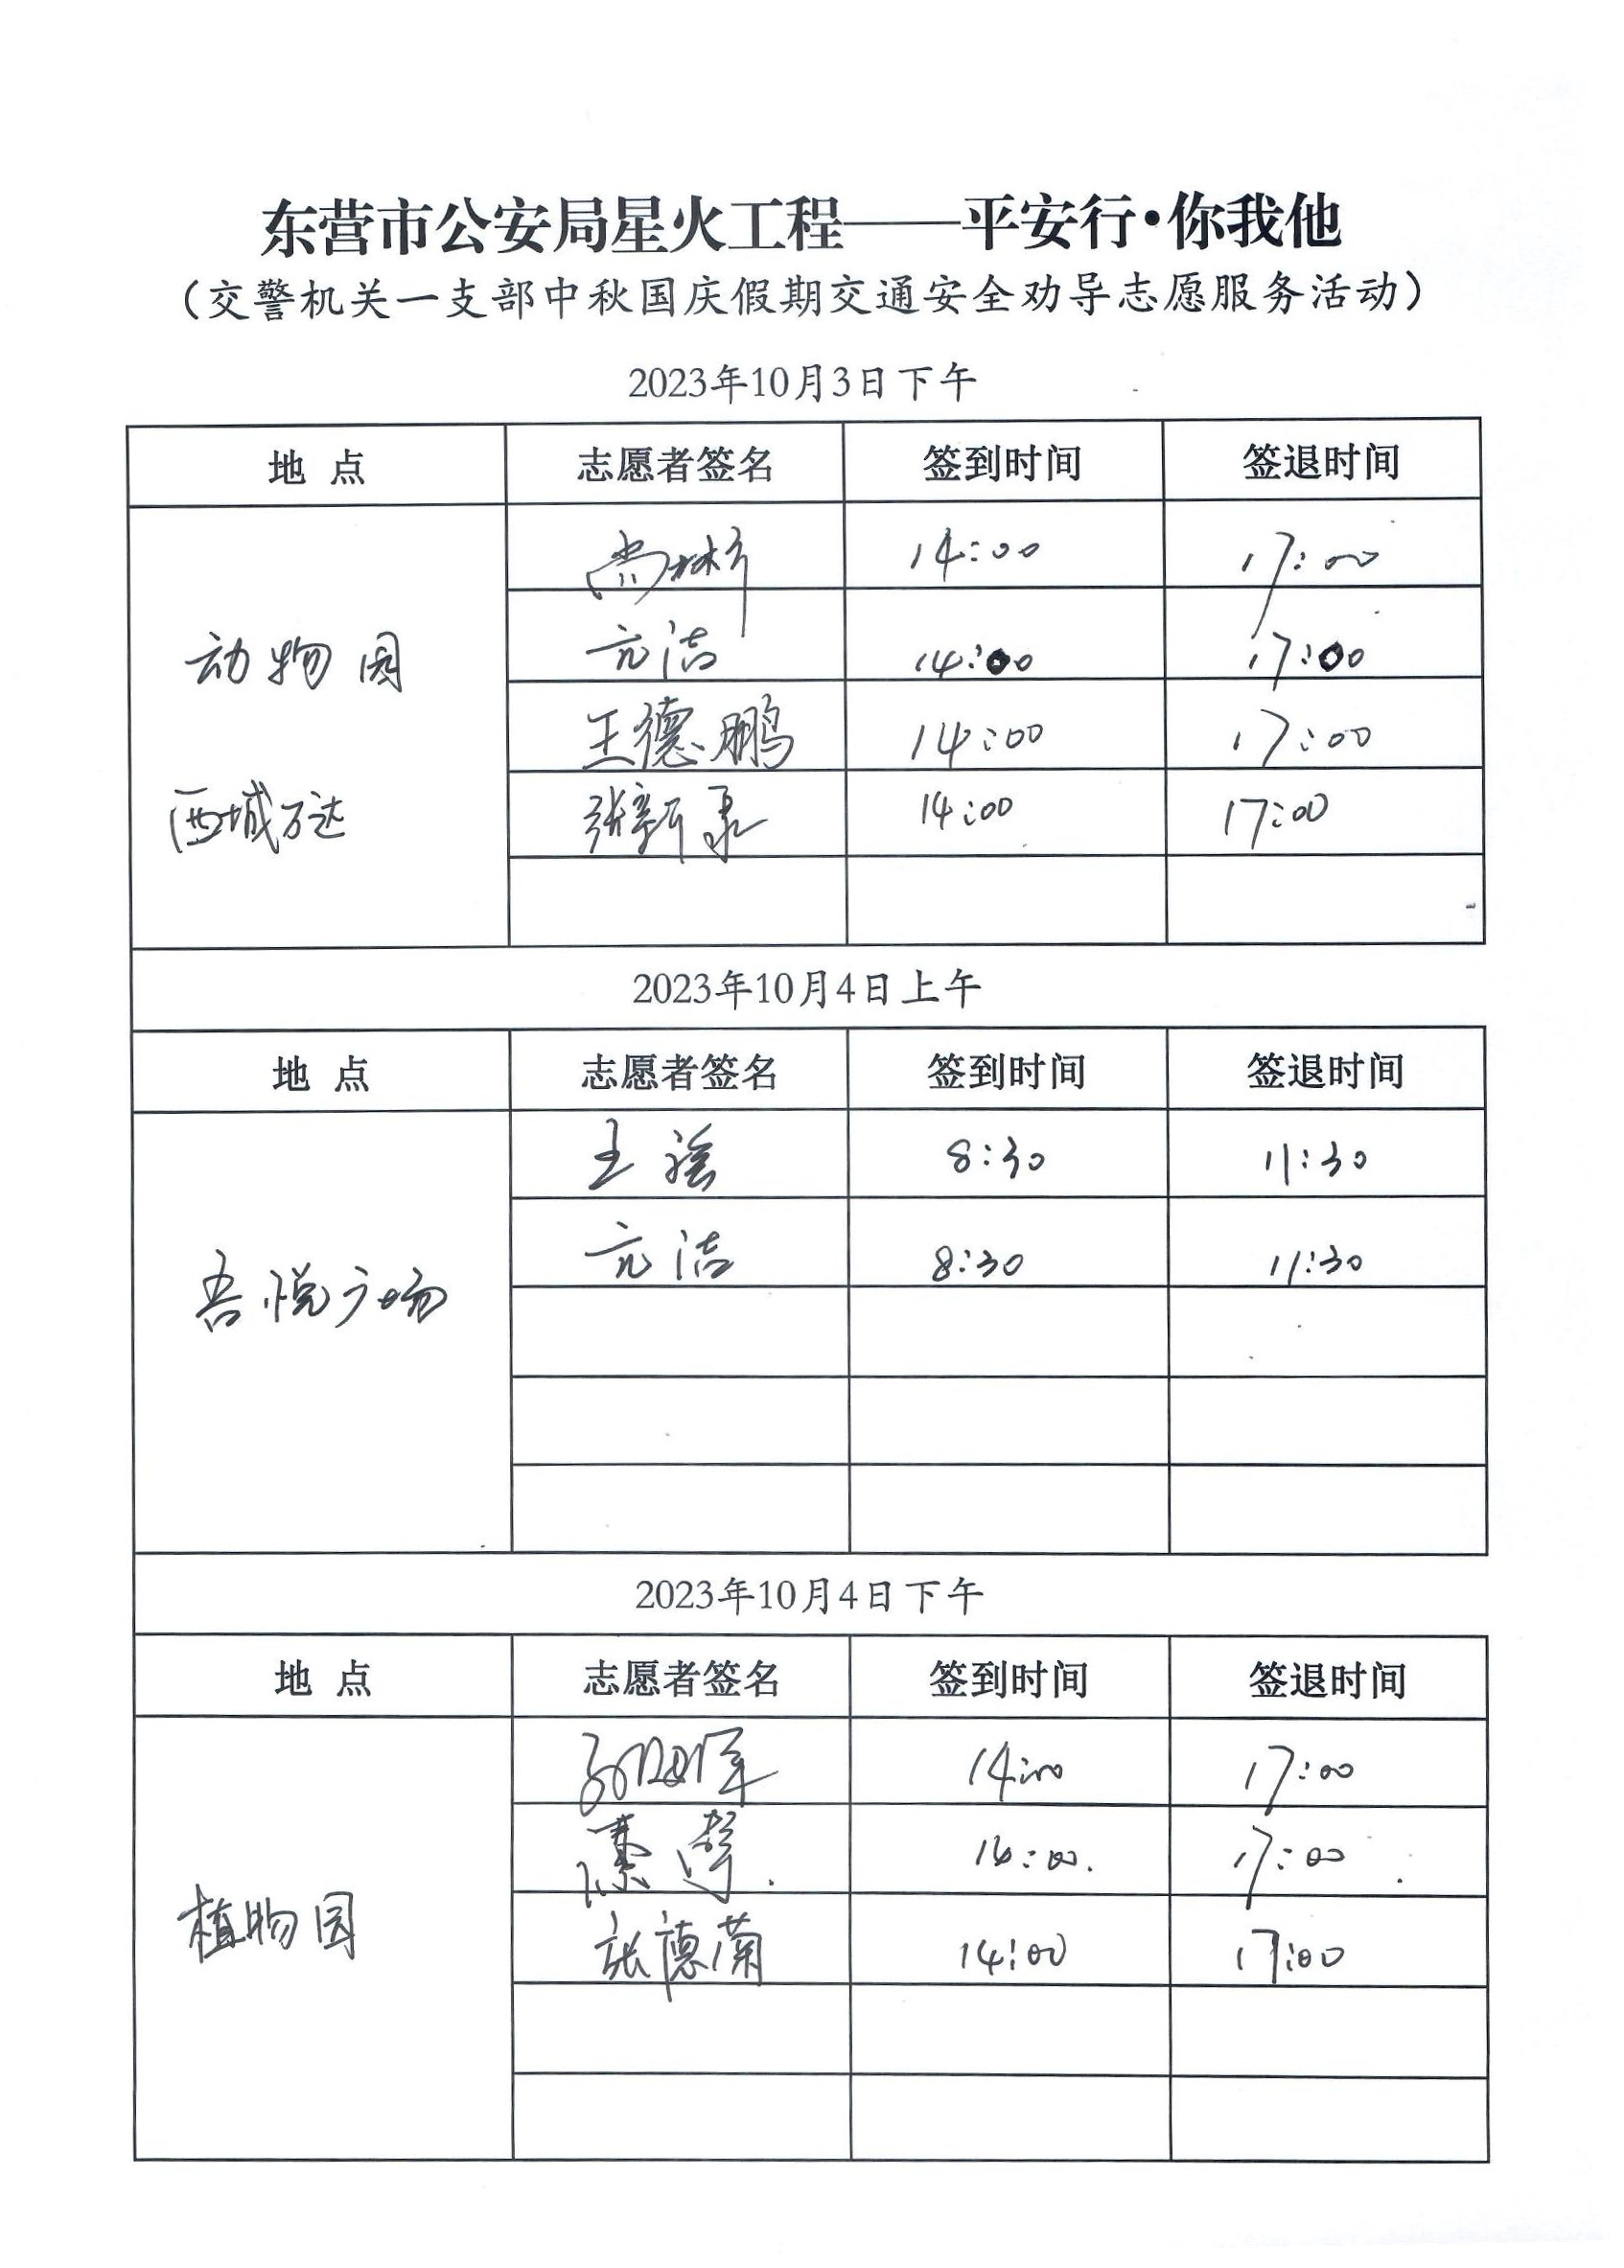 东营市公安局星火工程——平安行·你我他
（交警机关一支部中秋国庆假期交通安全劝导志愿服务活动）
2023年10月3日下午
地 点 志愿者签名 签到时间 签退时间
14:00 17:00
动物园 亓洁 14:00 17:00
王德鹏 14:00 17:00
西城万达 张新 14:00 17:00
2023年10月4日上午
地 点 志愿者签名 签到时间 签退时间
王 8:30 11:30
吾悦广场 亓洁 8:30 11:30
2023年10月4日下午
地 点 志愿者签名 签到时间 签退时间
14:00 17:00
17:00
植物园 张德菊 14:00 17:00